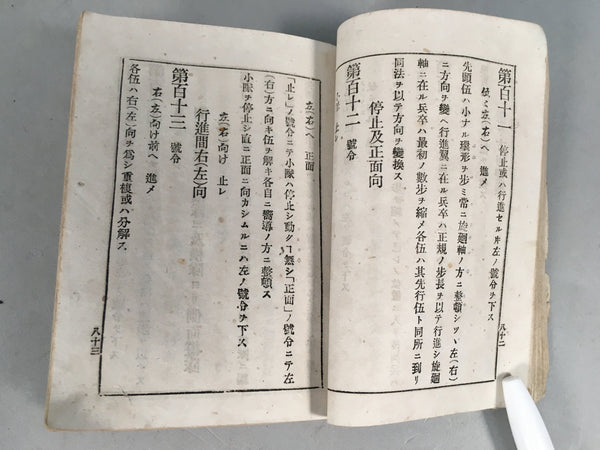 第百十一 停止或ハ行進セル牛左ノ號令ヲ下ス
伍々左(右)へ 進メ
先頭伍ハ小ナル環形ヲ歩ミ常ニ旋廻軸ノ方ニ整頓シツヽ左(右)
ニ方向ヲ變ヘ行進翼ニ在ル兵卒ハ正規ノ歩長ヲ以テ行進シ旋廻
軸ニ在ル兵卒ハ最初ノ數歩ヲ縮メ各伍ハ其先行伍ト同所ニ到リ
同法ヲ以テ方向ヲ變換ス
停止及正面向
第百十二 號令
八十二
左(右)へ 正面
「止レ」ノ號令ニテ小隊ハ停止シ動クコ無シ「正面」ノ號令ニテ左
(右)方ニ向キ伍ヲ解キ各自ニ嚮導ノ方ニ整頓ス
小隊ヲ停止シ直ニ正面ニ向カシムルニハ左ノ號令ヲ下ス
左(右)向け 止レ
行進間右(左)向
第百十三 號令
右(左)向け前へ 進メ
各伍ハ右(左)向ヲ爲シ重複或ハ分解ス
八十三